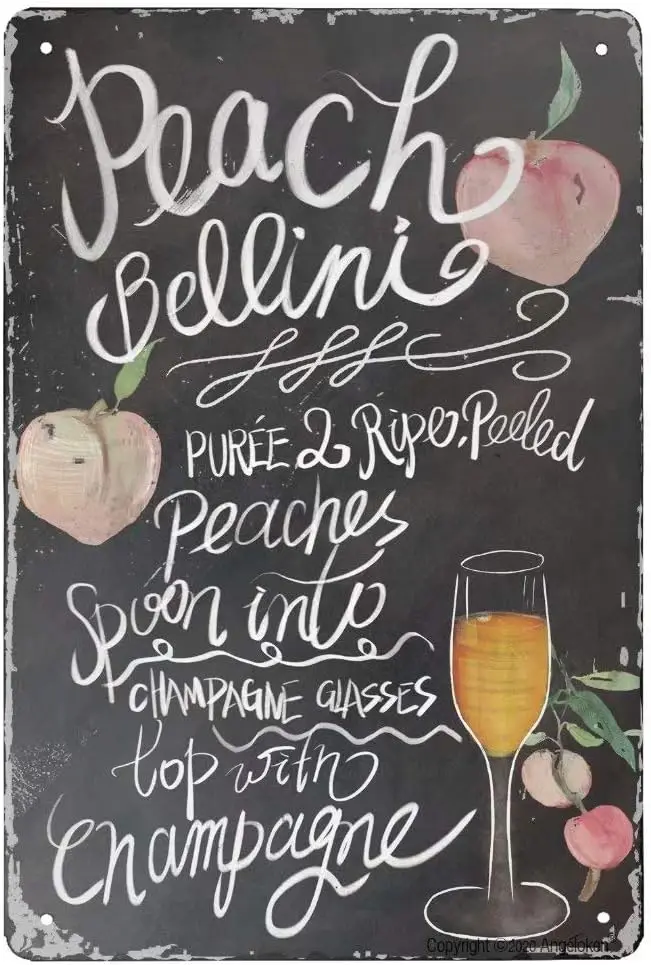 Peach
Bellini
PURÉE 2 Ripe, Peeled
Peaches
Spoon into
CHAMPAGNE GLASSES
top with
Champagne
Copyright ©2020 AngeloKen